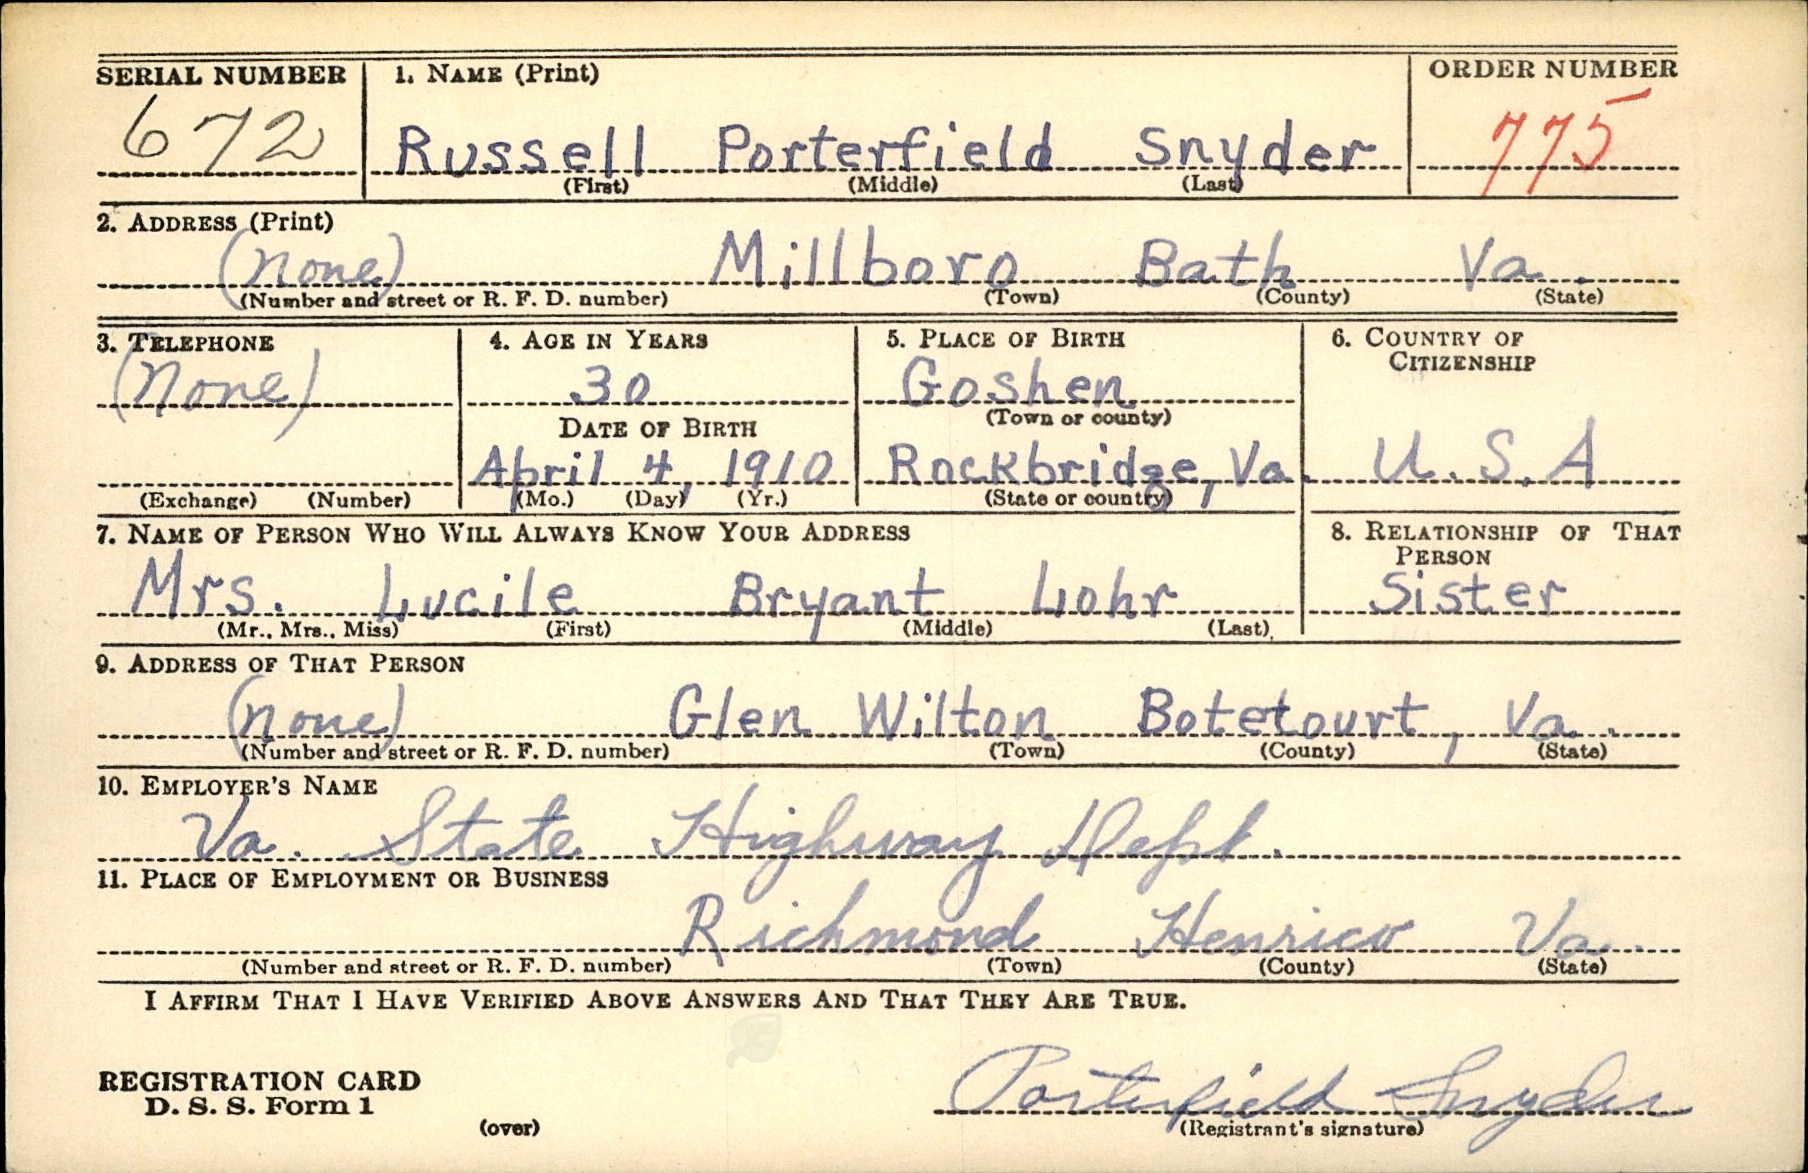 SERIAL NUMBER 1. NAME (Print) ORDER NUMBER
672 Russell Porterfield Snyder 775
(First) (Middle) (Last)
2. ADDRESS (Print)
(None) Millboro Bath Va.
(Number and street or R. F. D. number) (Town) (County) (State)
3. TELEPHONE 4. AGE IN YEARS 5. PLACE OF BIRTH 6. COUNTRY OF
CITIZENSHIP
(None) 30 Goshen
(Town or county)
DATE OF BIRTH
April 4, 1910 Rockbridge, Va. U.S.A
(Exchange) (Number) (Mo.) (Day) (Yr.) (State or country)
7. NAME OF PERSON WHO WILL ALWAYS KNOW YOUR ADDRESS 8. RELATIONSHIP OF THAT
PERSON
Mrs. Lucile Bryant Lohr Sister
(Mr., Mrs., Miss) (First) (Middle) (Last)
9. ADDRESS OF THAT PERSON
(None) Glen Wilton Botetourt, Va.
(Number and street or R. F. D. number) (Town) (County) (State)
10. EMPLOYER'S NAME
Va. State Highway Dept.
11. PLACE OF EMPLOYMENT OR BUSINESS
Richmond Henrico Va.
(Number and street or R. F. D. number) (Town) (County) (State)
I AFFIRM THAT I HAVE VERIFIED ABOVE ANSWERS AND THAT THEY ARE TRUE.
REGISTRATION CARD
D. S. S. Form 1
Porterfield Snyder
(over) (Registrant's signature)